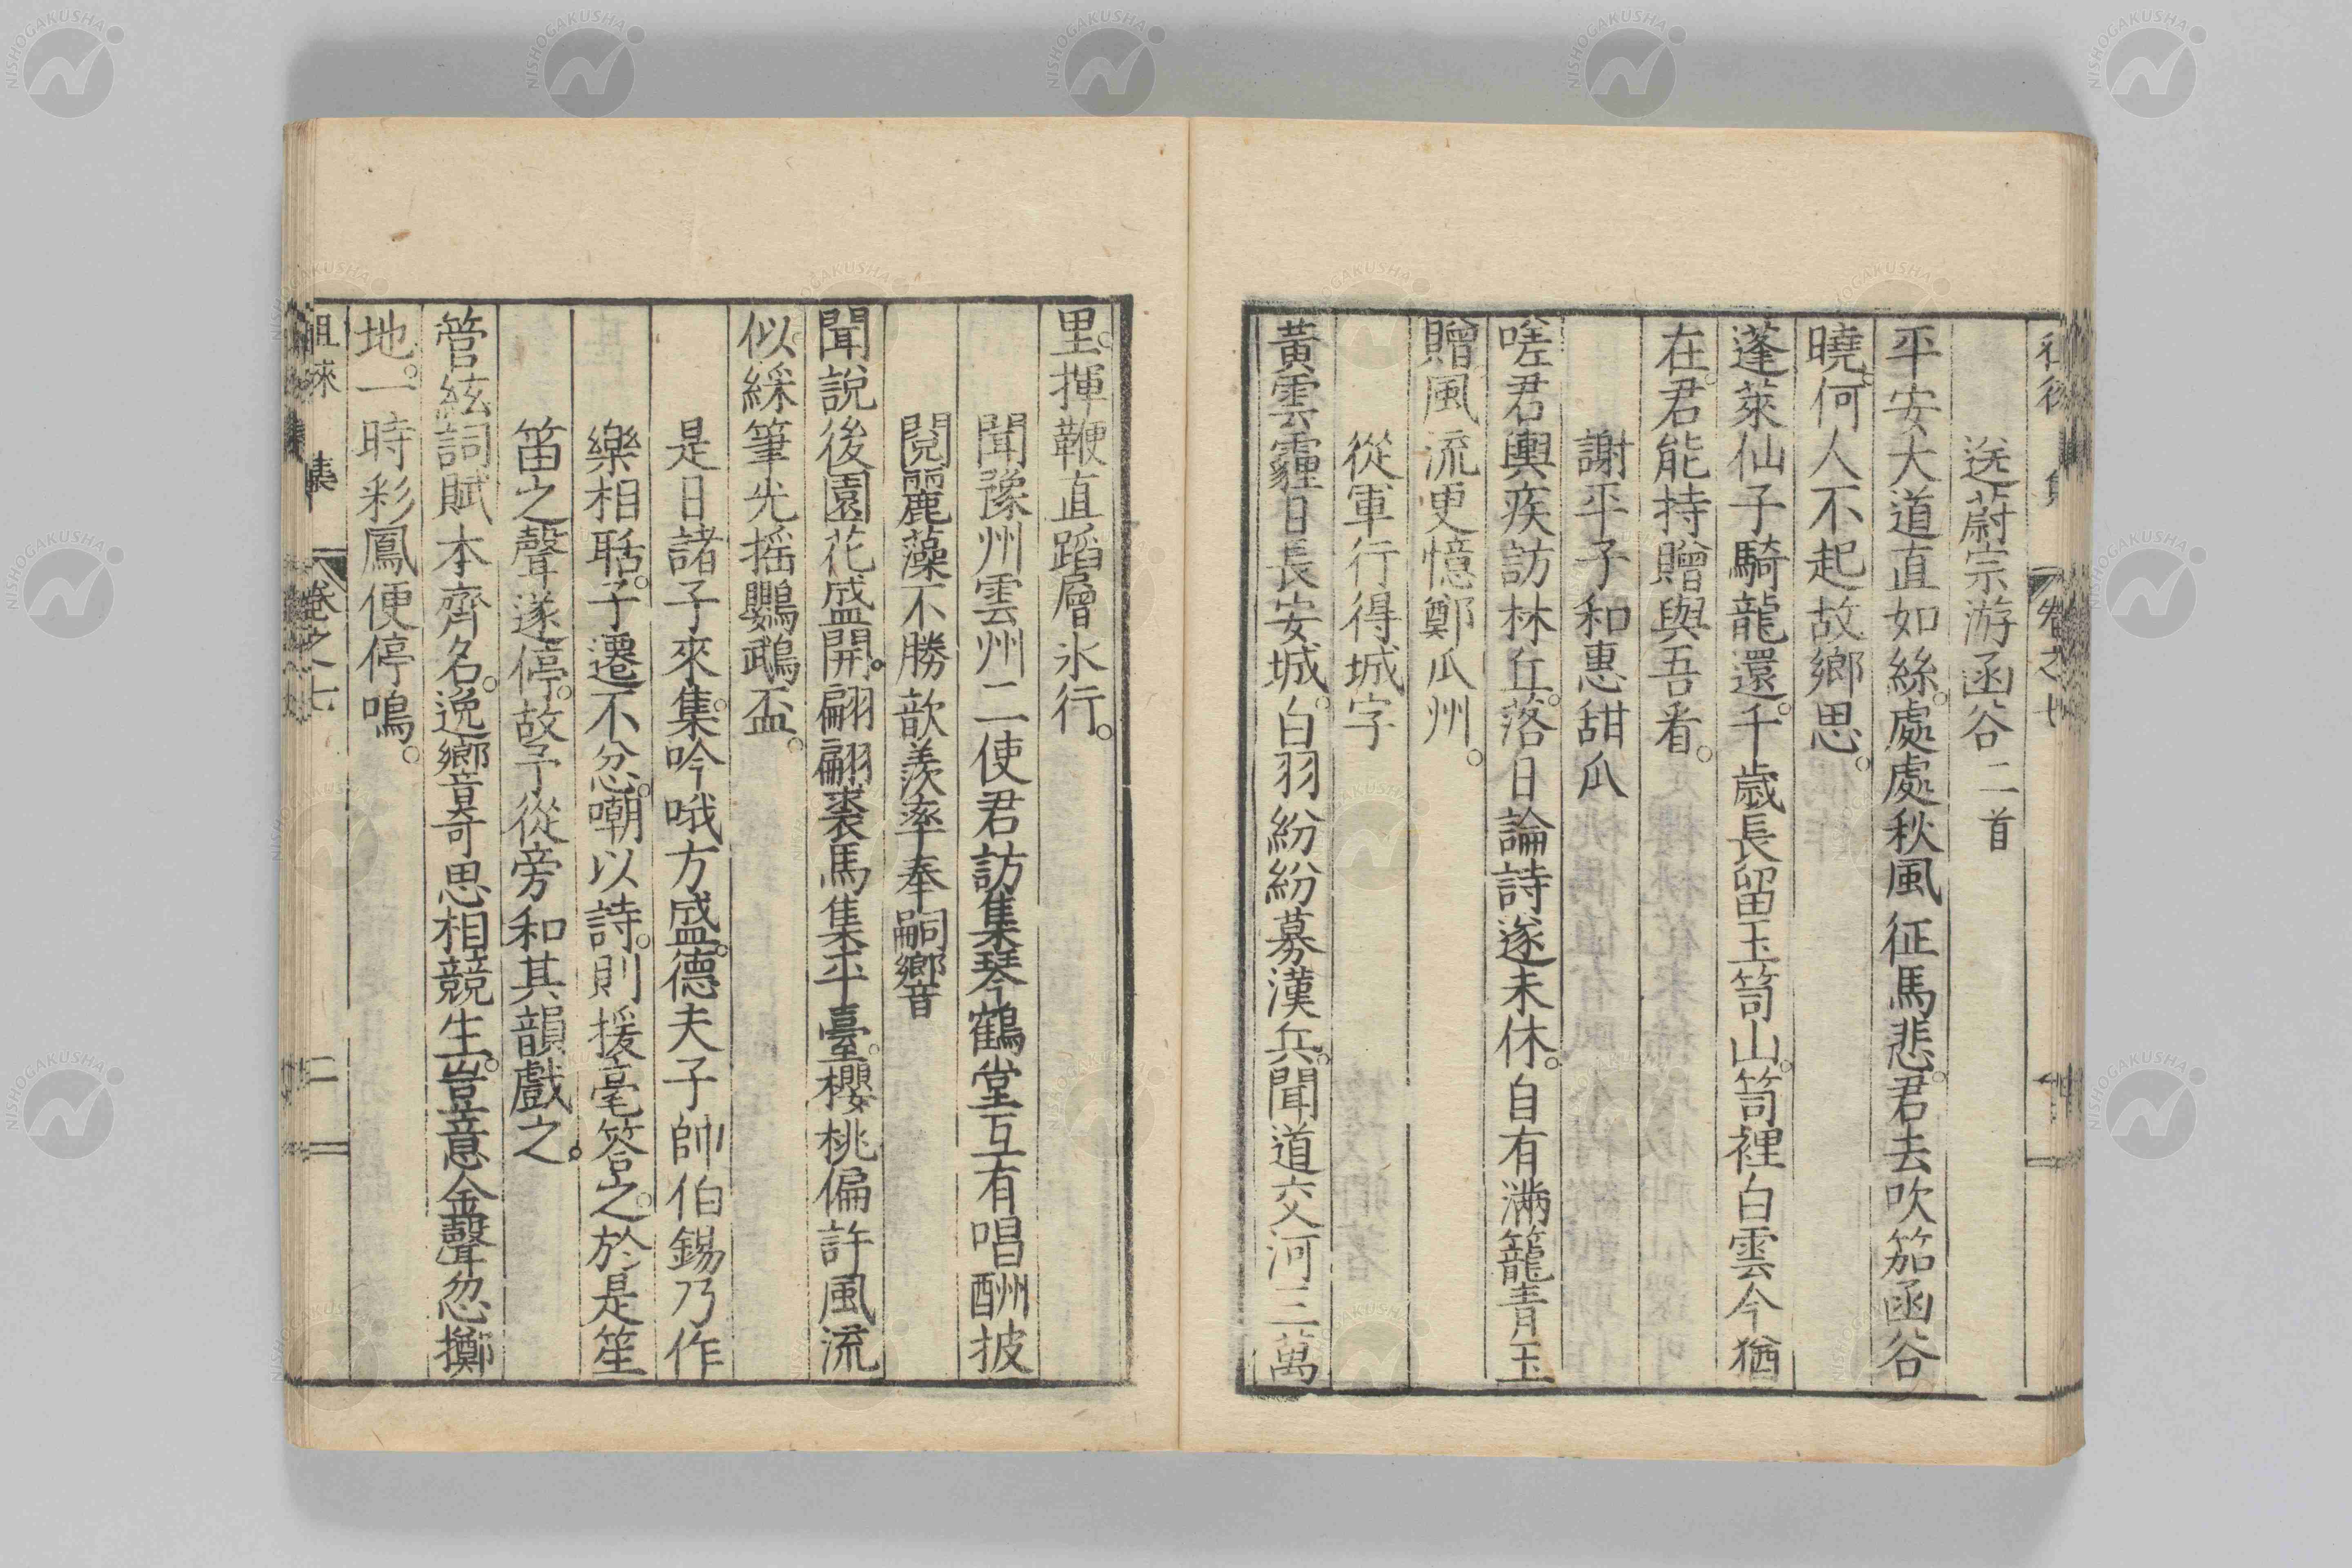 送蔚宗游函谷二首
平安大道直如絲。處處秋風征馬悲。君去吹笳函谷
曉。何人不起故鄉思。
蓬萊仙子騎龍還。千歲長留玉笥山。笥裡白雲今猶
在。君能持贈與吾看。
謝平子和惠甜瓜
嗟君輿疾訪林丘。落日論詩遂未休。自有滿籠青玉
贈。風流更憶鄭瓜州。
從軍行得城字
黃雲霾日長安城。白羽紛紛募漢兵。聞道交河三萬
里。揮鞭直蹈層氷行。
聞豫州雲州二使君訪集琴鶴堂互有唱酬披
閱麗藻不勝歆羨率奉嗣響
聞說後園花盛開。翩翩裘馬集平臺。櫻桃偏許風流
似。綵筆光搖鸚鵡盃。
是日諸子來集。吟哦方盛。德夫子帥伯錫乃作
樂相聒。子遷不忿。嘲以詩。則援毫答之。於是笙
笛之聲遂停。故予從旁和其韻戲之。
管絃詞賦本齊名。逸響奇思相競生。豈意金聲忽擲
地。一時彩鳳便停鳴。
徂徠集 卷之七 二